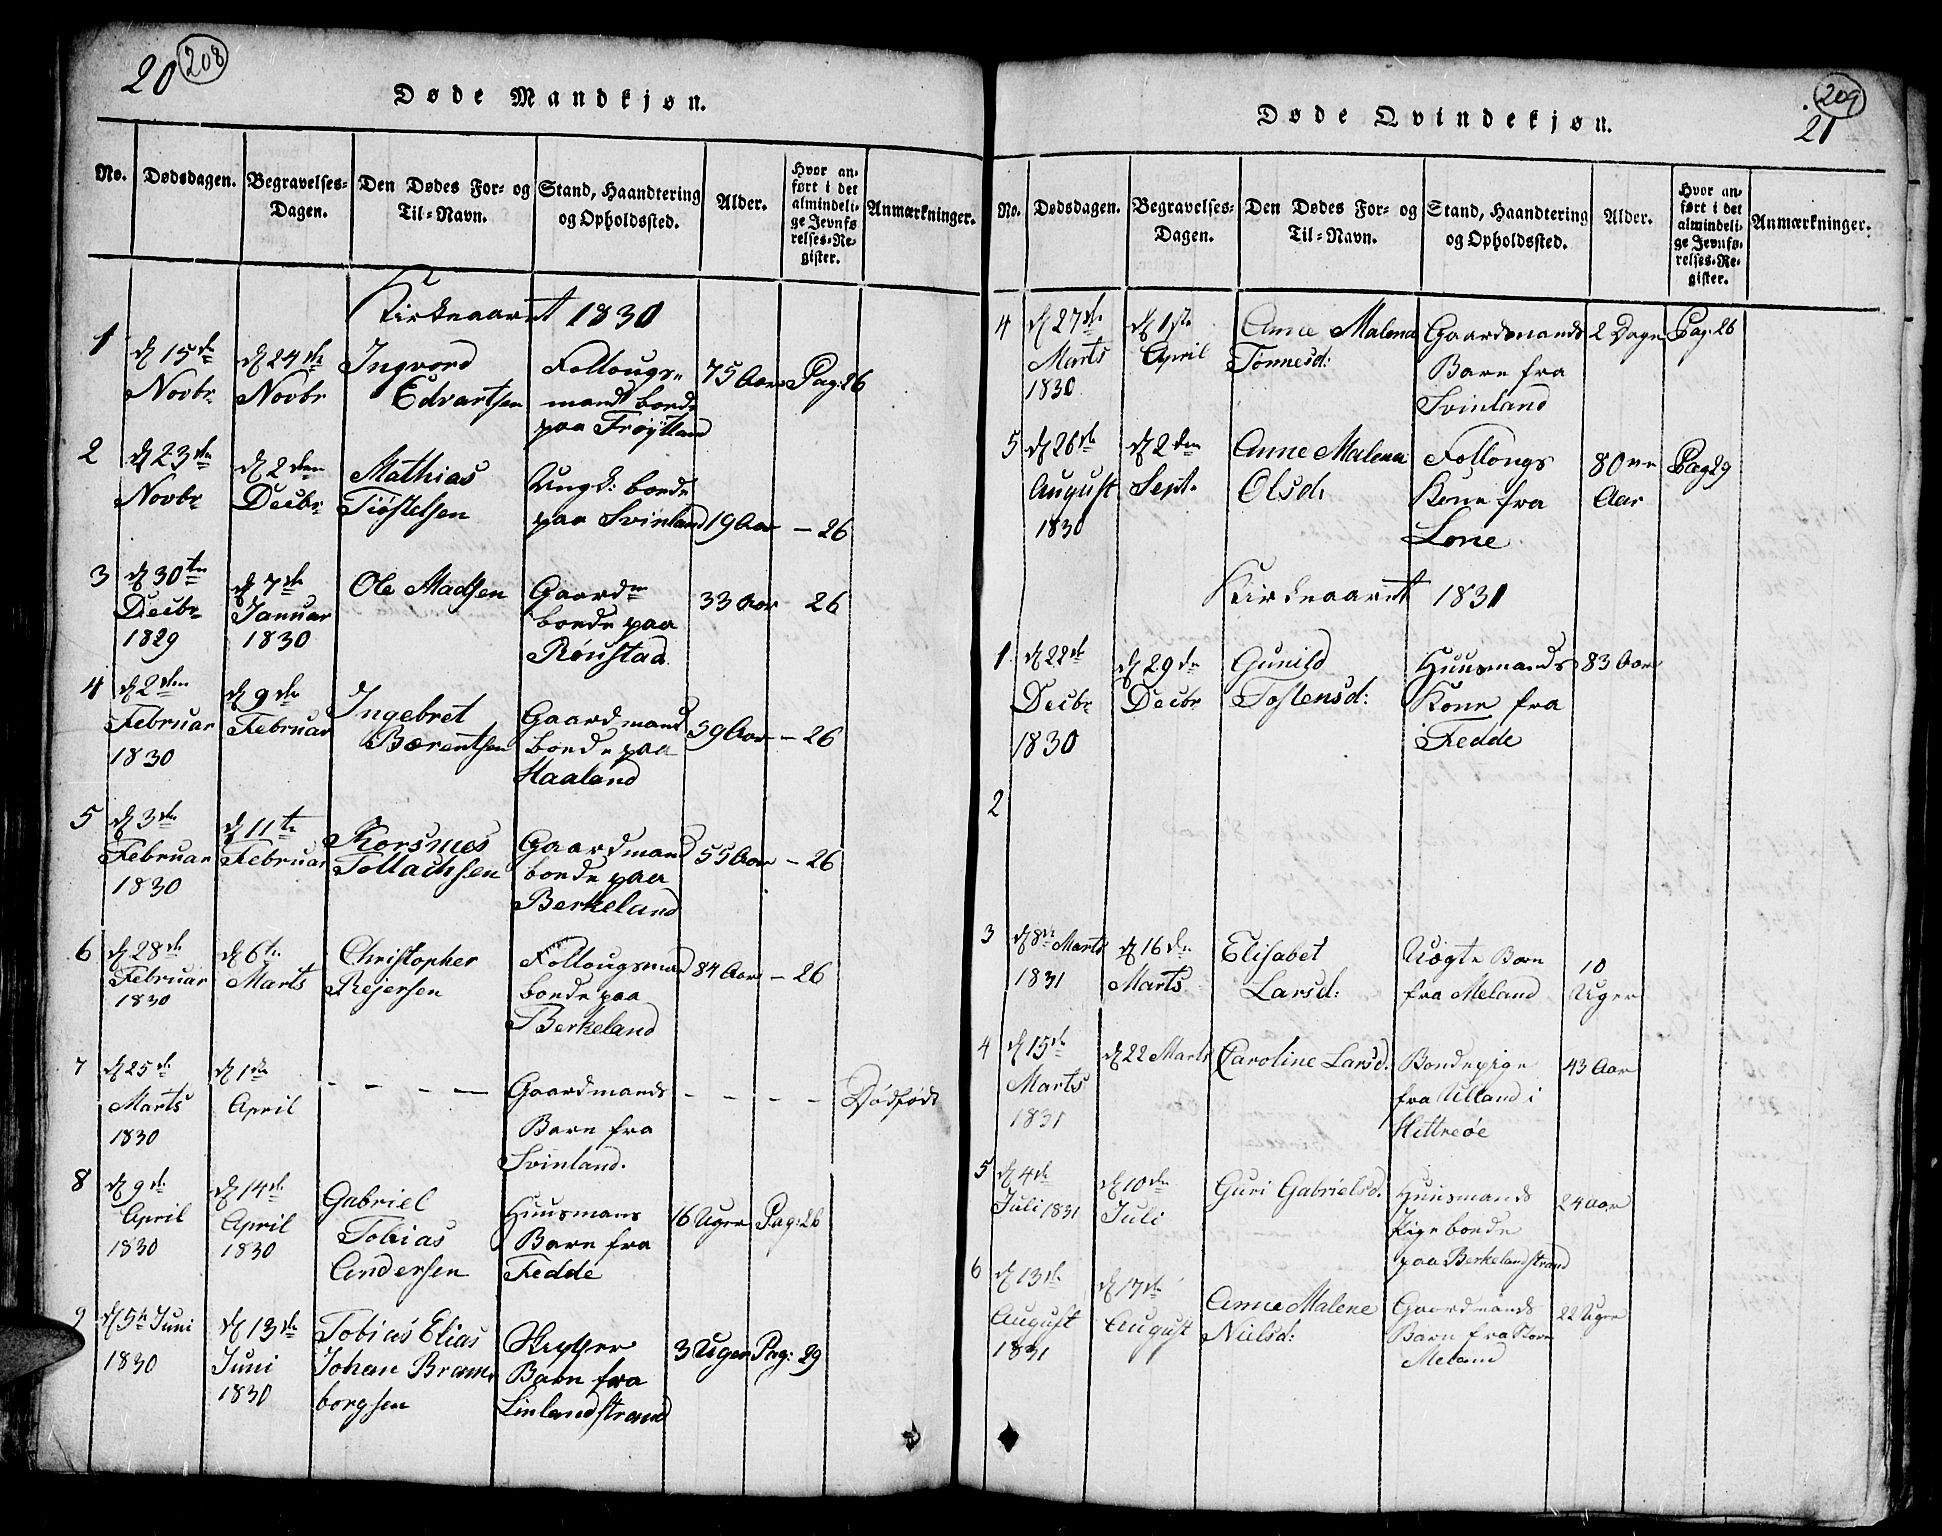 20 208
Døde Mandkjøn.
No. Dødsdagen. Begravelses-Dagen. Den Dødes For- og Til-Navn. Stand, Haandtering og Opholdssted. Alder. Hvor anført i det almindelige Jevnførelses-Register. Anmærkninger.
Kirkeaaret 1830
1 d 15de Novbr d 24de Novbr Ingvord Edvartsen Follougsmand boende paa Frøytland 75 Aar Pag: 26
2 d 23de Novbr d 2den Decbr Mathias Tiøstelsen Ungk: boende paa Svinland 19 Aar – 26
3 d 30te Decbr 1829 d 7de Januar 1830 Ole Madsen Gaardm boende paa Røiustad 33 Aar – 26
4 d 2den Februar 1830 d 9de Februar Ingebret Bærentsen Gaardmand boende paa Haaland 59 Aar – 26
5 d 3de Februar 1830 d 11te Februar Korsmes Tollachsen Gaardmand boende paa Berkeland 55 Aar – 26
6 d 28de Februar 1830 d 6te Marts Christopher Rejersen Follougsmand boende paa Berkeland 84 Aar – 26
7 d 25de Marts 1830 d 1ste April – – – – Gaardmands Barn fra Svinland. – – – – Dødfødt
8 d 9de April 1830 d 14de April 1830 Gabriel Tobias Andersen Huusmans Barn fra Fedde 16 Uger Pag: 26
9 d 5te Juni 1830 d 13de Juni 1830 Tobias Elias Johan Bramborgsen Skipper Barn fra Linlandstrand 3 Uger Pag: 29
209
21
Døde Qvindekjøn.
No. Dødsdagen. Begravelses-Dagen. Den Dødes For- og Til-Navn. Stand, Haandtering og Opholdssted. Alder. Hvor anført i det almindelige Jevnførelses-Register. Anmærkninger.
4 d 27de Marts 1830 d 1ste April Anne Malena Tønnesd: Gaardmands Barn fra Svinland 2 Dage Pag: 26
5 d 26de August 1830 d 2den Sept. Anne Malena Olsd: Follougs Kone fra Lone 80 Aar Pag 29
Kirkeaaret 1831
1. d 22de Decbr 1830 d 29de Decbr Gunild Tostensd: Huusmands Kone fra Fedde 83 Aar
2
3 d 8de Marts 1831 d 16de Marts Elisabet Larsd: Uægte Barn fra Meland 10 Uger
4 d 15de Marts 1831 d 22 Marts Caroline Larsd. Bondepige fra Ulland i Hittreøe 43 Aar
5 d 4de Juli 1831 d 10de Juli Guri Gabrielsd. Huusmands Pige boende paa Berkelandstrand 24 Aar
6 d 13de August 1831 d 17de August Anne Malene Nielsd: Gaardmands Barn fra Store Meland 22 Uger